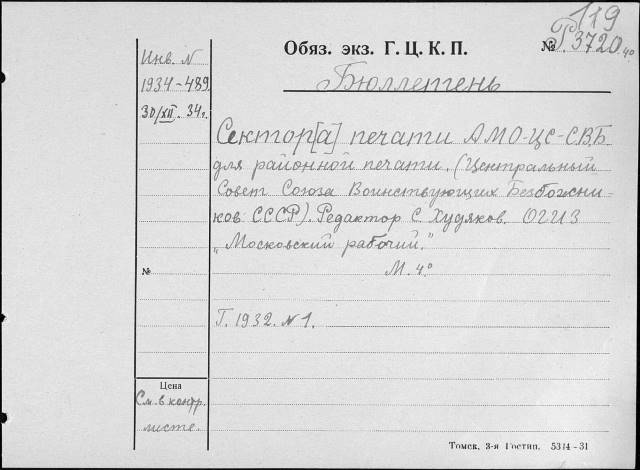 119
Обяз. экз. Г. Ц. К. П.
№ Р. 3720.40
Бюллетень
Инв. N
1934-489
30/XII. 34г.
Сектор[а] печати АМО-ЦС-СВБ
для районной печати. (Центральный
Совет Союза Воинствующих Безбожни-
ков СССР). Редактор С. Худяков. ОГИЗ
„Московский рабочий."
М. 4°
№
Г. 1932. N 1.
Цена
См. в контр.
листе.
Томск, 3-я Гостип. 5314-31